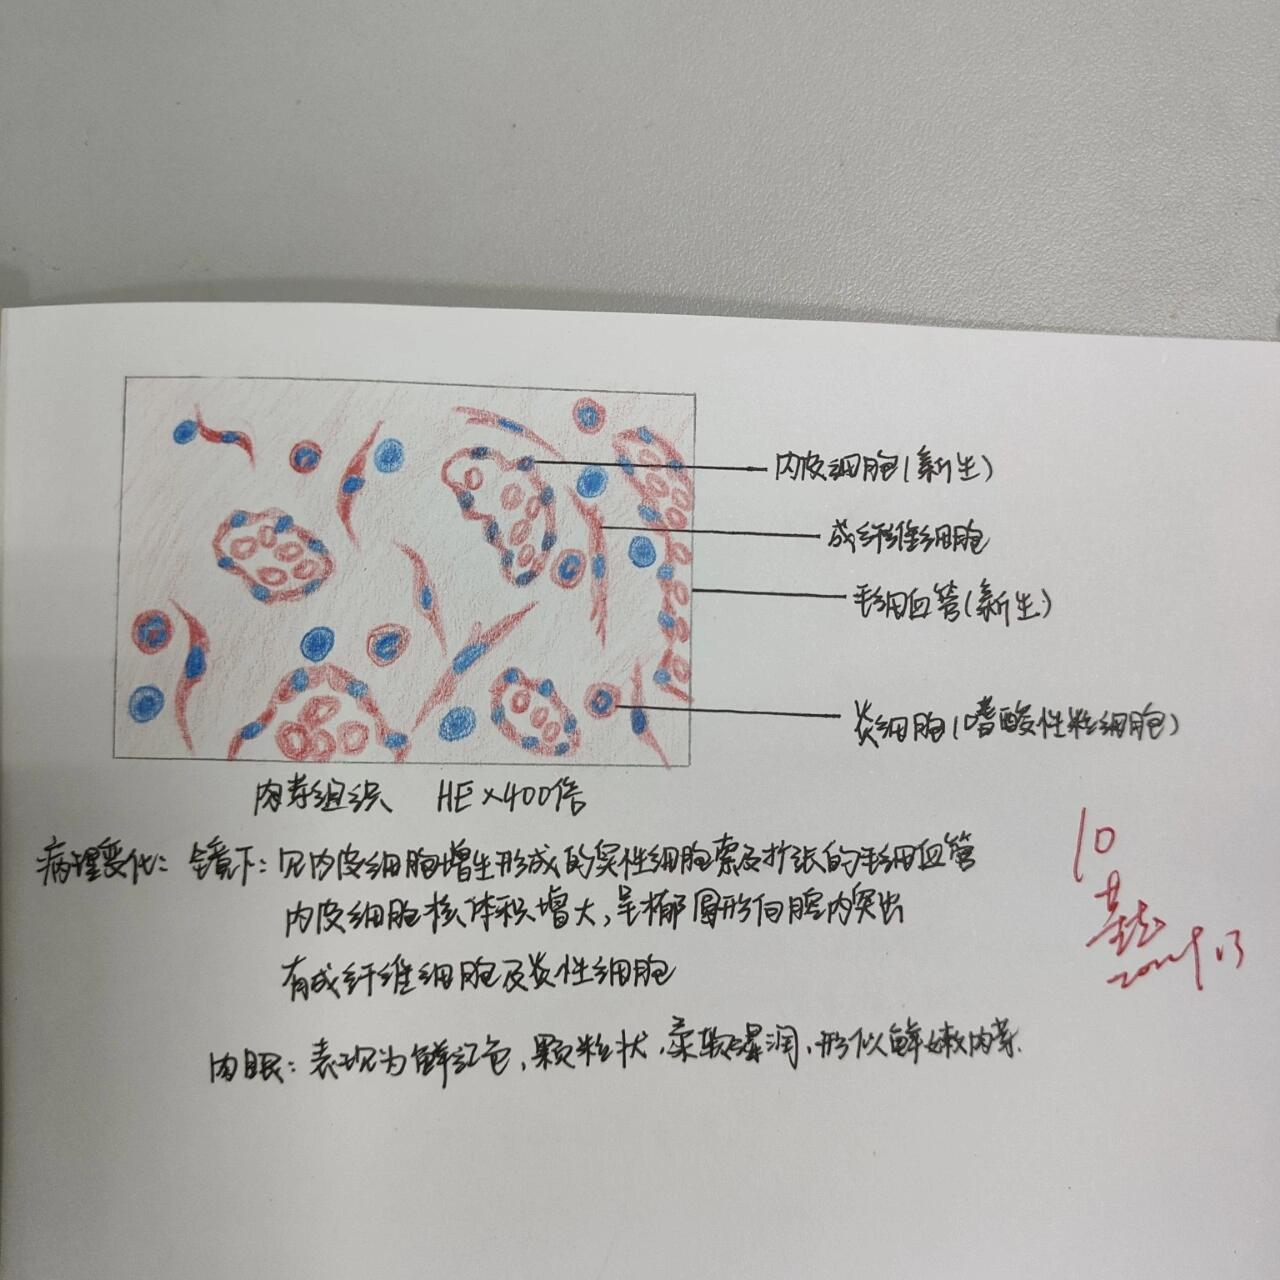 内皮细胞(新生)
成纤维细胞
毛细血管(新生)
炎细胞(嗜酸性粒细胞)
肉芽组织 HE×400倍
病理变化: 镜下: 见内皮细胞增生形成的实性细胞索及扩张的毛细血管
内皮细胞核体积增大,呈椭圆形向腔内突出
有成纤维细胞及炎性细胞
肉眼: 表现为鲜红色,颗粒状,柔软湿润,形似鲜嫩肉芽.
10